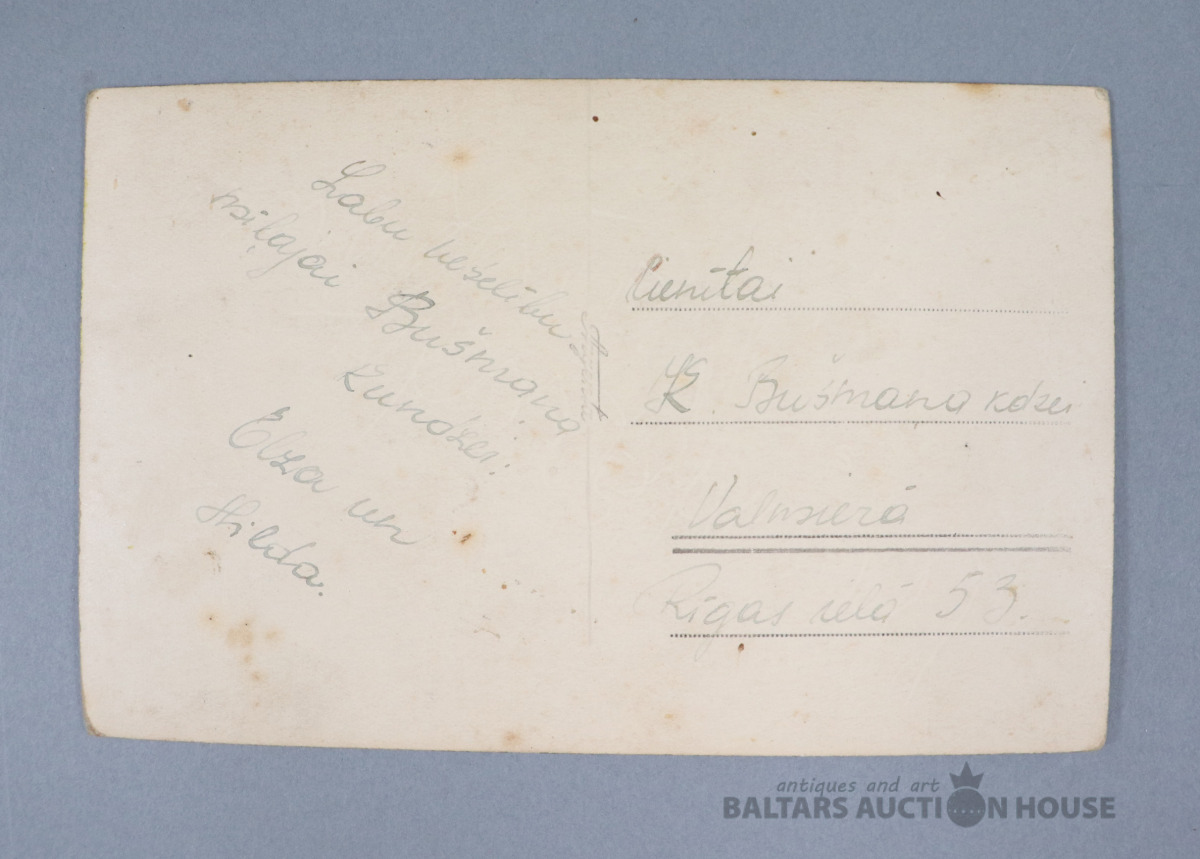 Labu veselību
miļajai Bušmana
kundzei!
Elza un
Hilda.
Cienītai
K. Bušmana kdzei
Valmierā
Rīgas ielā 53.
antiques and art
BALTARS AUCTION HOUSE